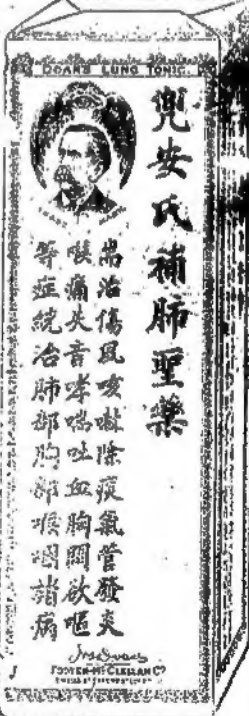 DOAN'S LUNG TONIC.
兜安氏補肺聖藥
耑治傷風咳嗽除痰氣管發炎
喉痛失音哮喘吐血胸悶欲嘔
等症統治肺部胸部喉咽諸病
Jas Doan
FOSTER-McCLELLAN Co